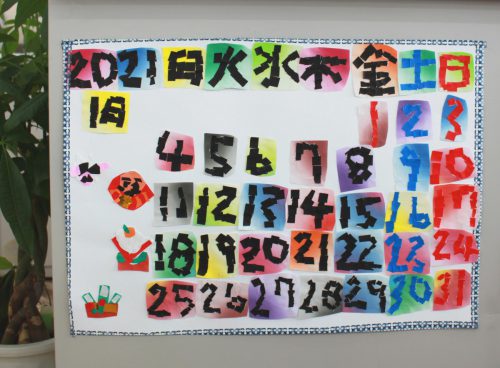 2021 月 火 水 木 金 土 日
1月
1 2 3
4 5 6 7 8 9 10
11 12 13 14 15 16 17
18 19 20 21 22 23 24
25 26 27 28 29 30 31